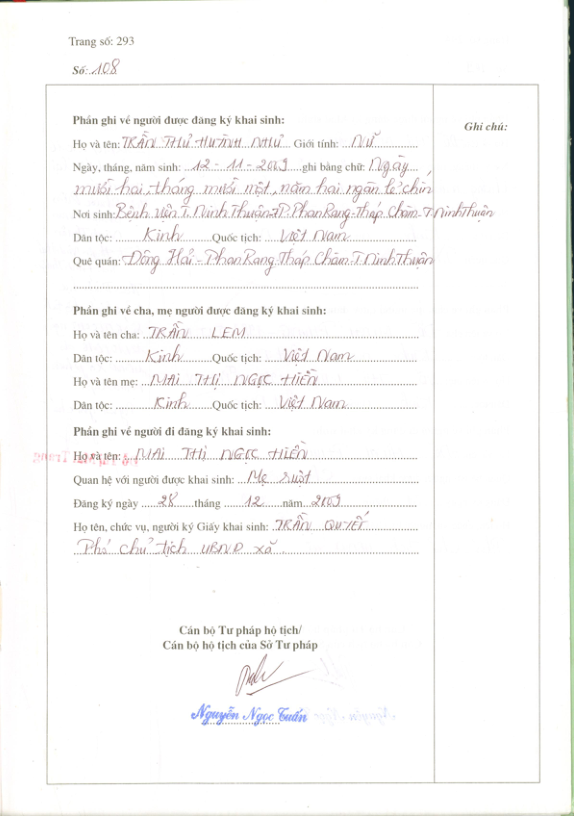 Trang số: 293
Số: 108
Phần ghi về người được đăng ký khai sinh:
Ghi chú:
Họ và tên: TRẦN THỤ HUỲNH NHƯ Giới tính: NỮ
Ngày, tháng, năm sinh: 12 - 11 - 2009 ghi bằng chữ: Ngày
mười hai, tháng mười một, năm hai ngàn lẻ chín
Nơi sinh: Bệnh viện T. Ninh Thuận TP. Phan Rang-Tháp Chàm-T. Ninh Thuận
Dân tộc: Kinh Quốc tịch: Việt Nam
Quê quán: Đông Hải - Phan Rang-Tháp Chàm-T. Ninh Thuận
Phần ghi về cha, mẹ người được đăng ký khai sinh:
Họ và tên cha: TRẦN LEM
Dân tộc: Kinh Quốc tịch: Việt Nam
Họ và tên mẹ: MAI THỊ NGỌC HIỀN
Dân tộc: Kinh Quốc tịch: Việt Nam
Phần ghi về người đi đăng ký khai sinh:
Họ và tên: MAI THỊ NGỌC HIỀN
Quan hệ với người được khai sinh: Mẹ ruột
Đăng ký ngày 28 tháng 12 năm 2009
Họ tên, chức vụ, người ký Giấy khai sinh: TRẦN QUYẾT
Phó chủ tịch UBND xã
Cán bộ Tư pháp hộ tịch/
Cán bộ hộ tịch của Sở Tư pháp
Nguyễn Ngọc Tuấn